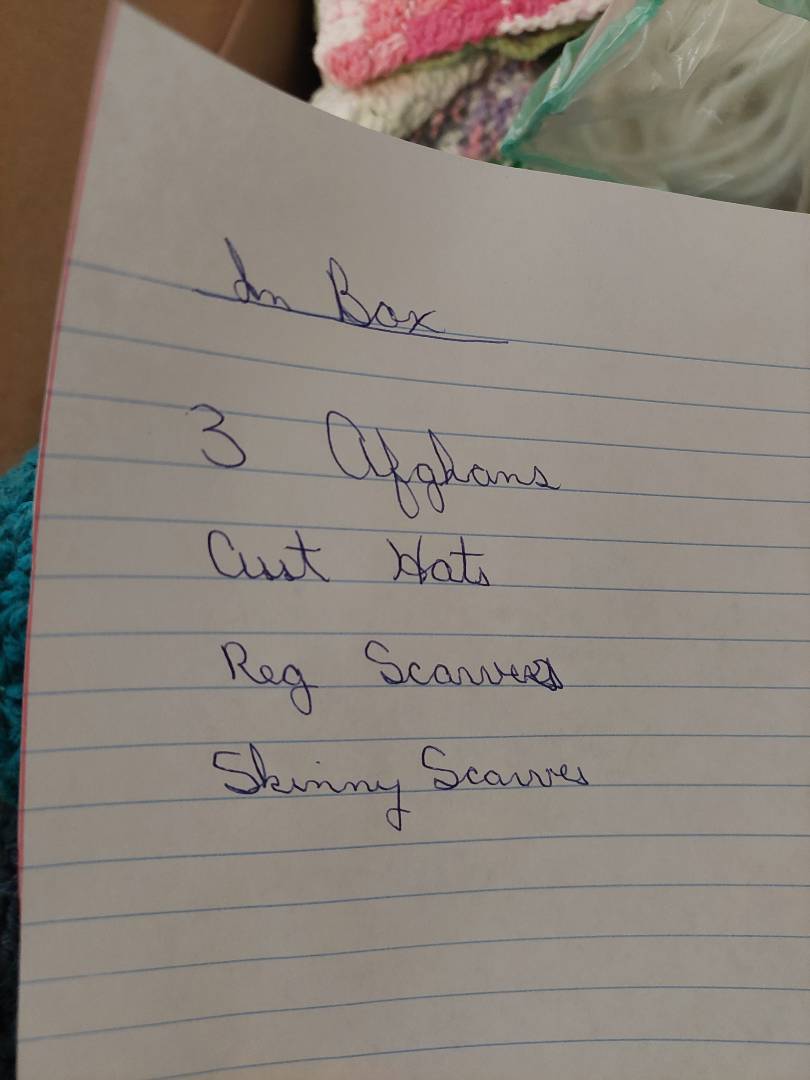 In Box
3 Afghans
Hats
Reg Scarves
Skinny Scarves